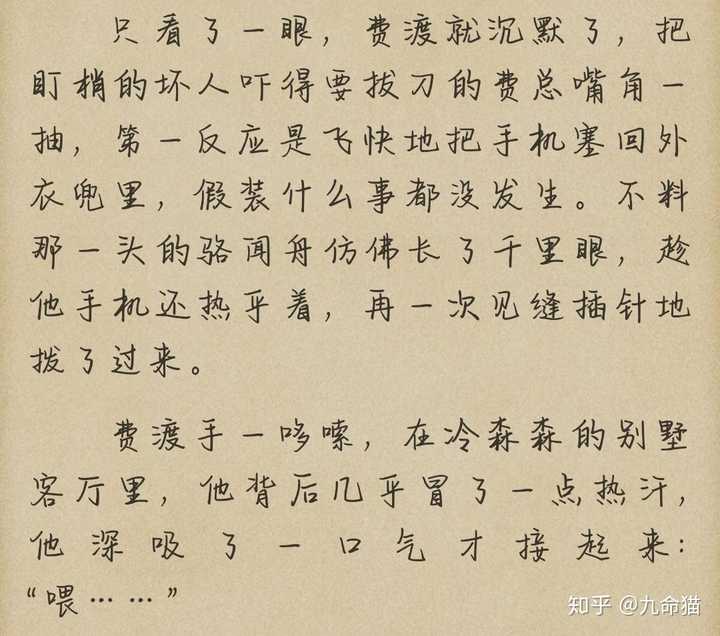 只看了一眼，费渡就沉默了，把
盯梢的坏人吓得要拔刀的费总嘴角一
抽，第一反应是飞快地把手机塞回外
衣兜里，假装什么事都没发生。不料
那一头的骆闻舟仿佛长了千里眼，趁
他手机还热乎着，再一次见缝插针地
拨了过来。
费渡手一哆嗦，在冷森森的别墅
客厅里，他背后几乎冒了一点热汗，
他深吸了一口气才接起来：
“喂……”
知乎 @九命猫